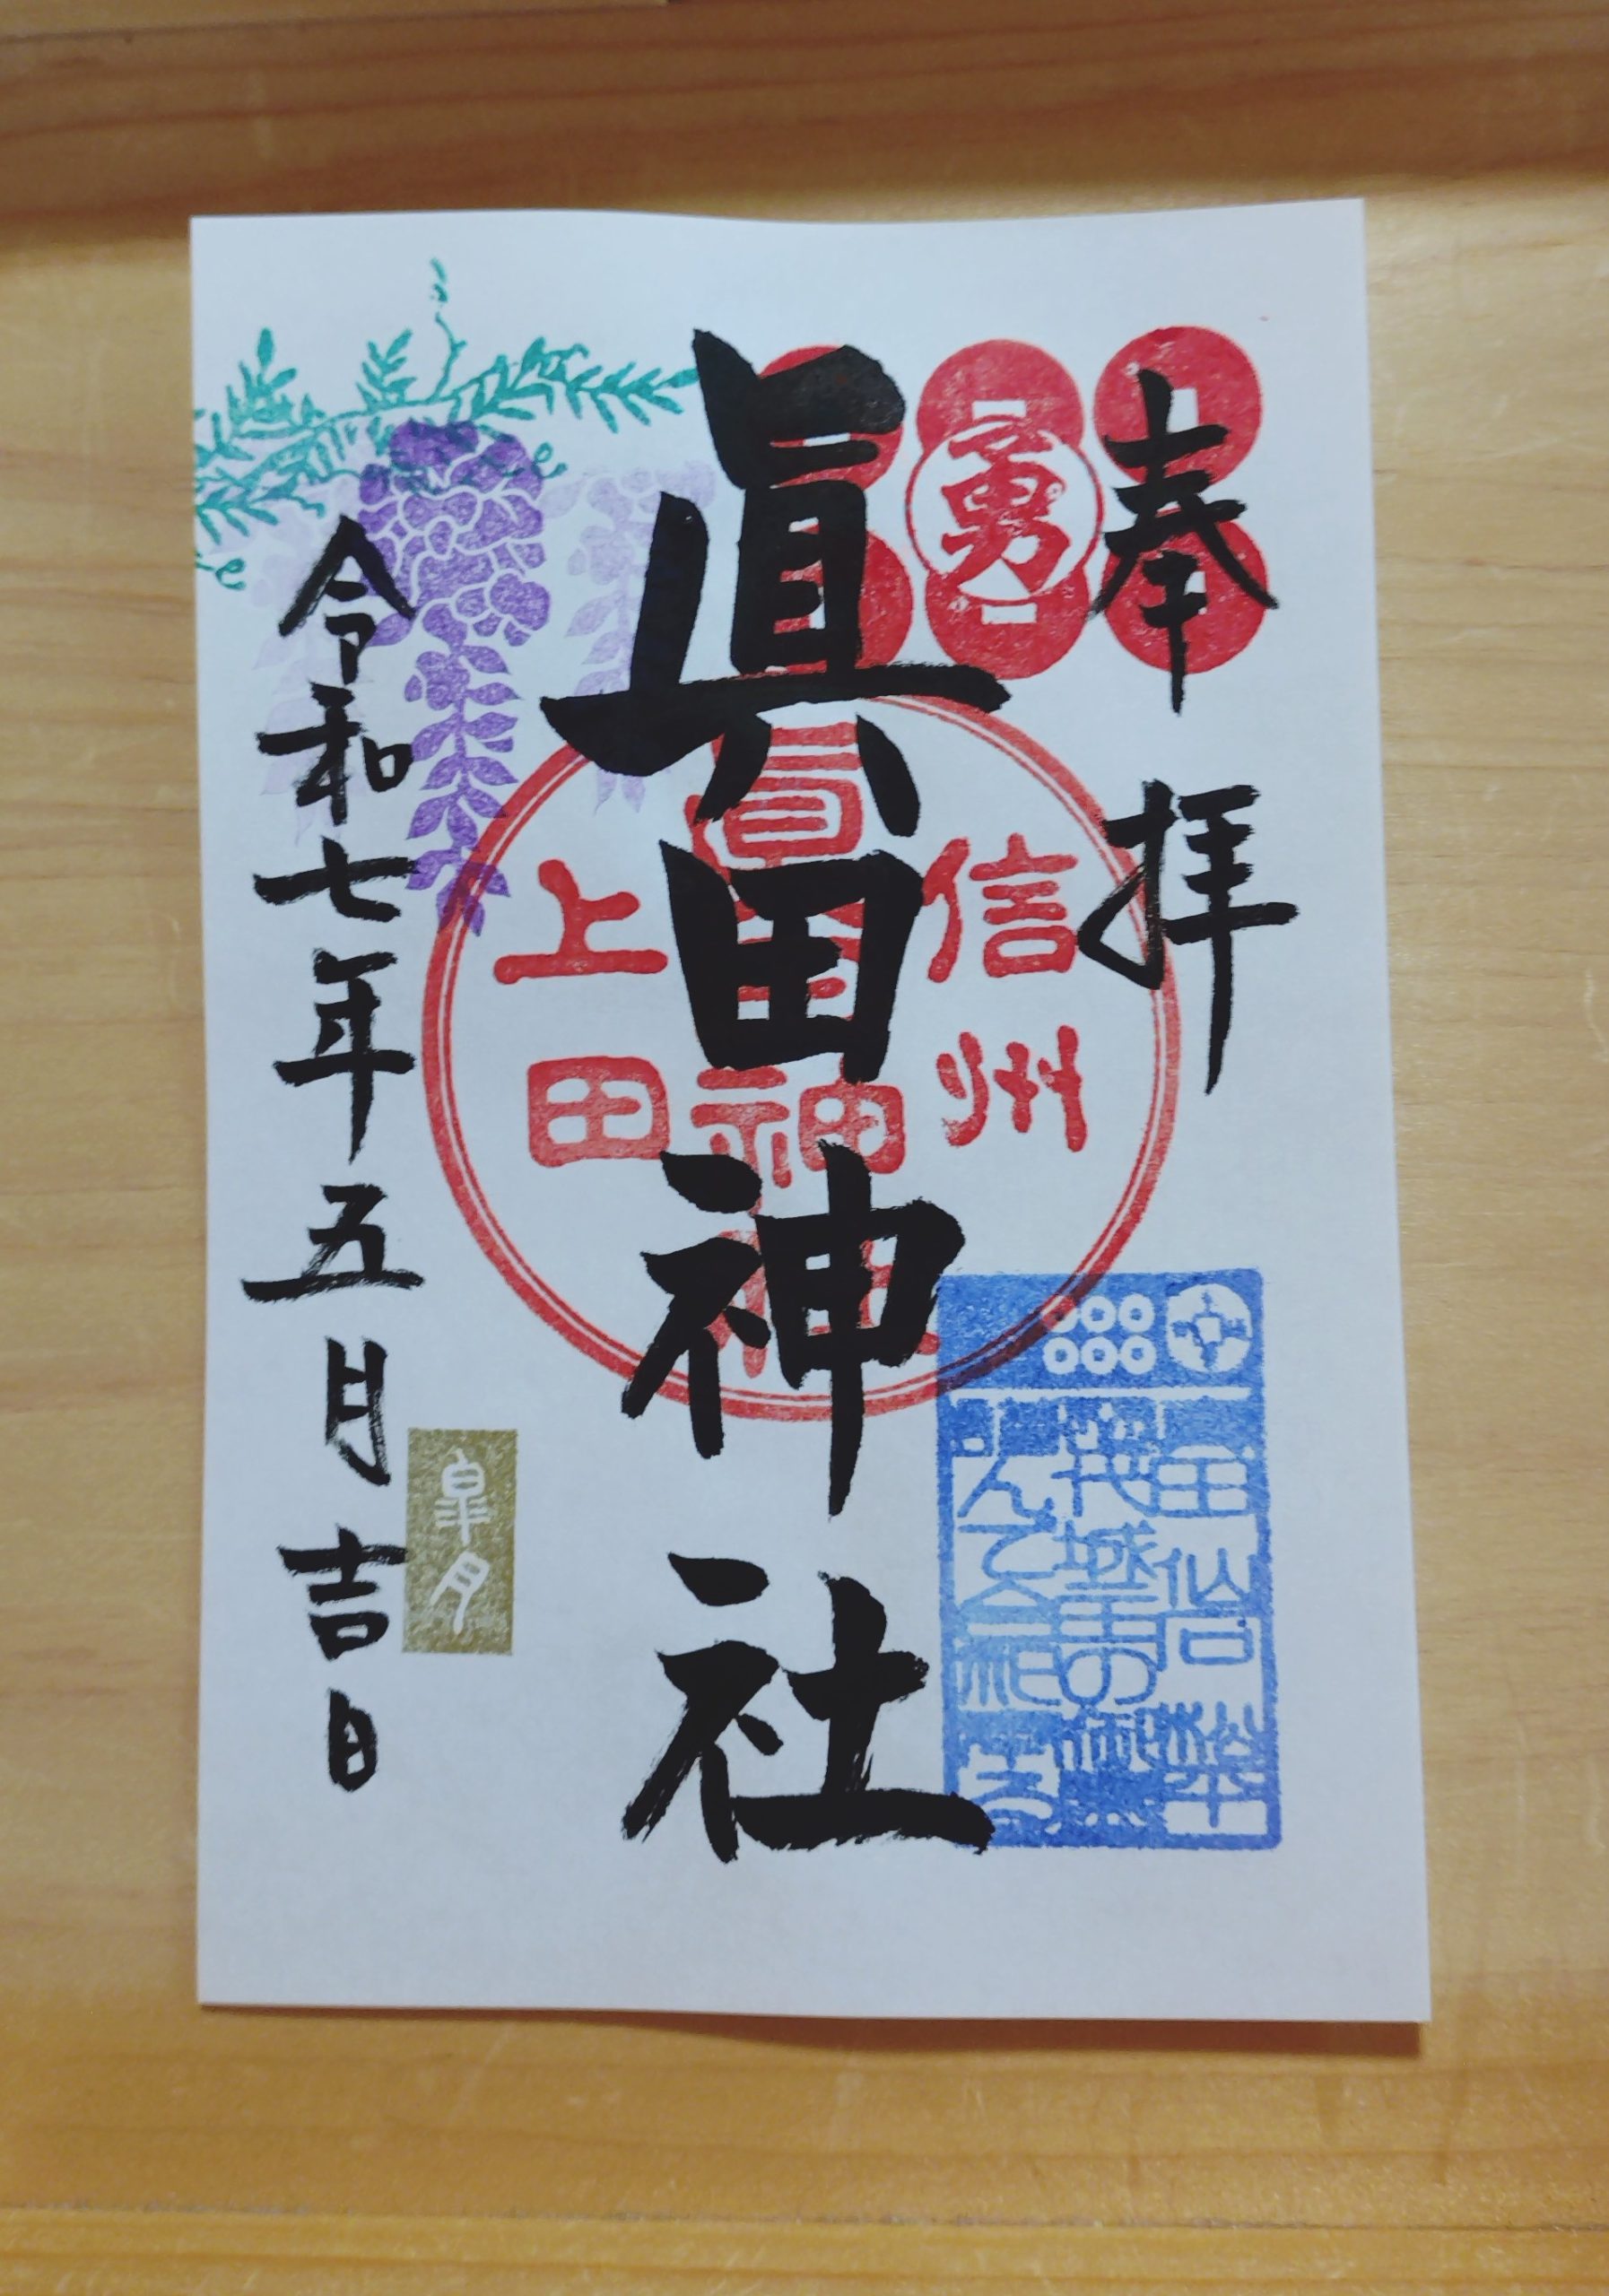 奉拝
勇
眞田神社
信州
眞田神社
上田
皐月
令和七年五月吉日